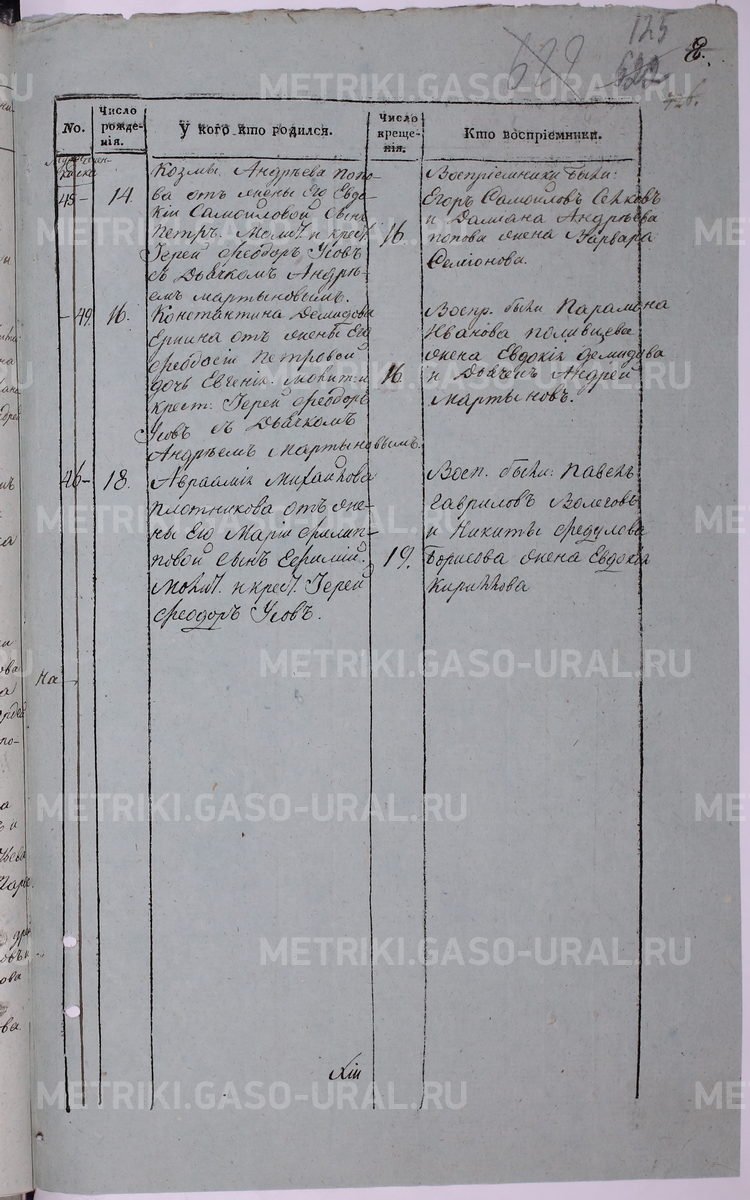 125
629
8.
No.
Число рожденія.
У кого кто родился.
Число крещенія.
Кто воспріемники.
45 – 14.
Козмы Андрѣева попо-
ва отъ жены его Евдо-
кіи Самойловой сынъ
Петръ. Молит. и крест.
Іерей Ѳеодоръ Усовъ
съ Дьячкомъ Андрѣ-
емъ Мартыновымъ.
16.
Воспріемники были:
Егоръ Самойловъ
и Даміана Андрѣева
попова жена Варвара
Семіонова.
– 49. 16.
Константина Демидова
Еркина отъ жены его
Ѳеодосіи Петровой
дочь Евгенія. Молит. и
крест: Іерей Ѳеодоръ
Усовъ съ Дьячкомъ
Андрѣемъ Мартыновымъ.
16.
Воспр. были Парамона
Иванова поливцева
жена Евдокія демидова
и Дьячекъ Андрей
Мартыновъ.
46 – 18.
Авраамія Михайлова
плотникова отъ же-
ны его Маріи Филип-
повой сынъ Ефимій.
Молит. и крест. Іерей
Ѳеодоръ Усовъ.
19.
Восп. были: Павелъ
Гавриловъ Волеговъ
и Никиты Ѳедулова
Борисова жена Евдокія
Кирилова
На
METRIKI.GASO-URAL.RU